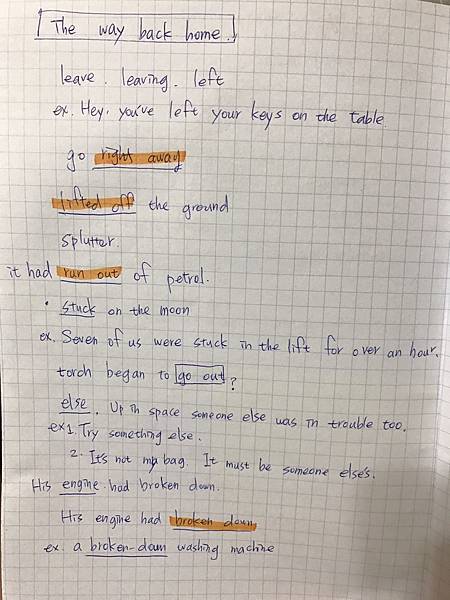 The way back home.
leave. leaving. left
ex. Hey, you've left your keys on the table
go right away
lifted off the ground
splutter.
it had run out of petrol.
• stuck on the moon
ex. Seven of us were stuck in the lift for over an hour.
torch began to go out?
else. Up in space someone else was in trouble too.
ex 1. Try something else.
2. It's not my bag. It must be someone else's.
His engine had broken down.
His engine had broken down
ex. a broken-down washing machine